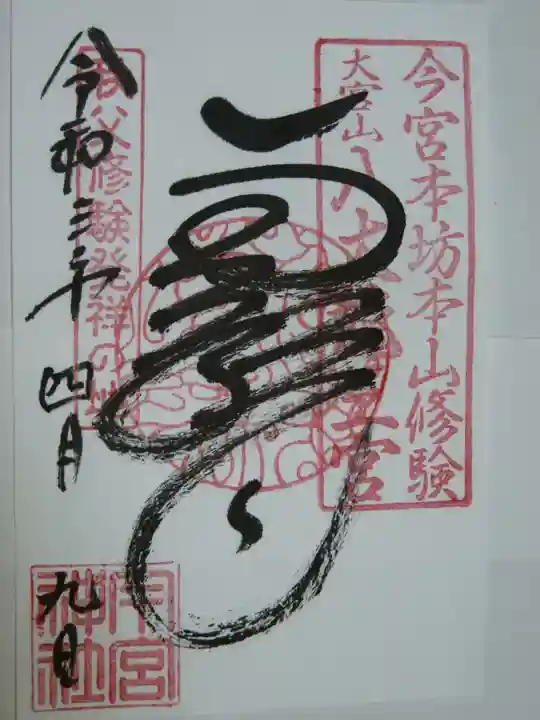 今宮本坊本山修験
大宮山八大龍王宮
秩父修験発祥の地
令和三年四月九日
今宮神社